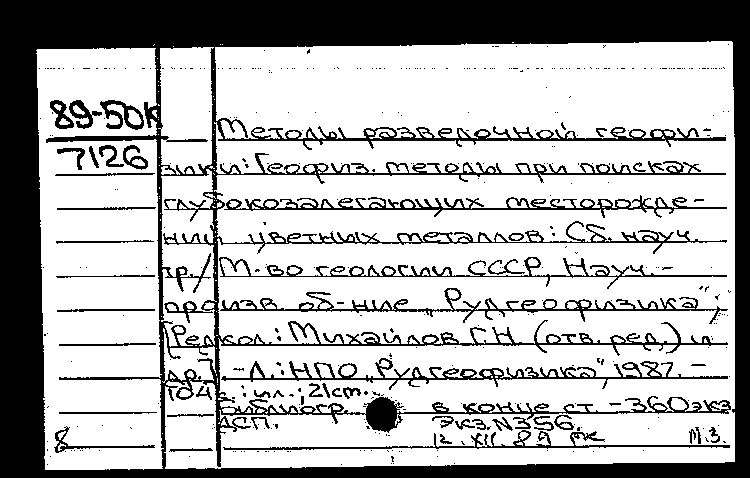 89-50к
7126
Методы разведочной геофи-
зики: Геофиз. методы при поисках
глубокозалегающих месторожде-
ний цветных металлов: Сб. науч.
тр./ М-во геологии СССР, Науч.-
произв. об-ние „Рудгеофизика";
[Редкол.: Михайлов Г.Н. (отв. ред.) и
др.]. -Л.: НПО „Рудгеофизика", 1987. -
104 с.: ил.; 21 cm.
Библиогр. в конце ст. - 360 экз.
ДСП. Экз. N 356.
12. XII. 89
М.З.
8